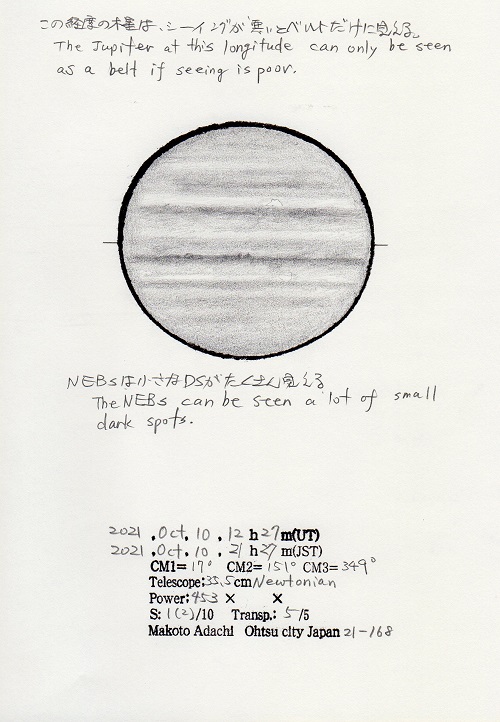 この経度の木星は、シーイングが悪いとベルトだけに見える。
The Jupiter at this longitude can only be seen
as a belt if seeing is poor.
NEBsは小さなDSがたくさん見える
The NEBs can be seen a lot of small
dark spots.
2021 .Oct. 10 . 12 h 27 m(UT)
2021 .Oct. 10 . 21 h 27 m(JST)
CM1= 17° CM2= 151° CM3= 349°
Telescope: 35.5cm Newtonian
Power: 453 × ×
S: 1(2)/10 Transp.: 5/5
Makoto Adachi Ohtsu city Japan 21-168